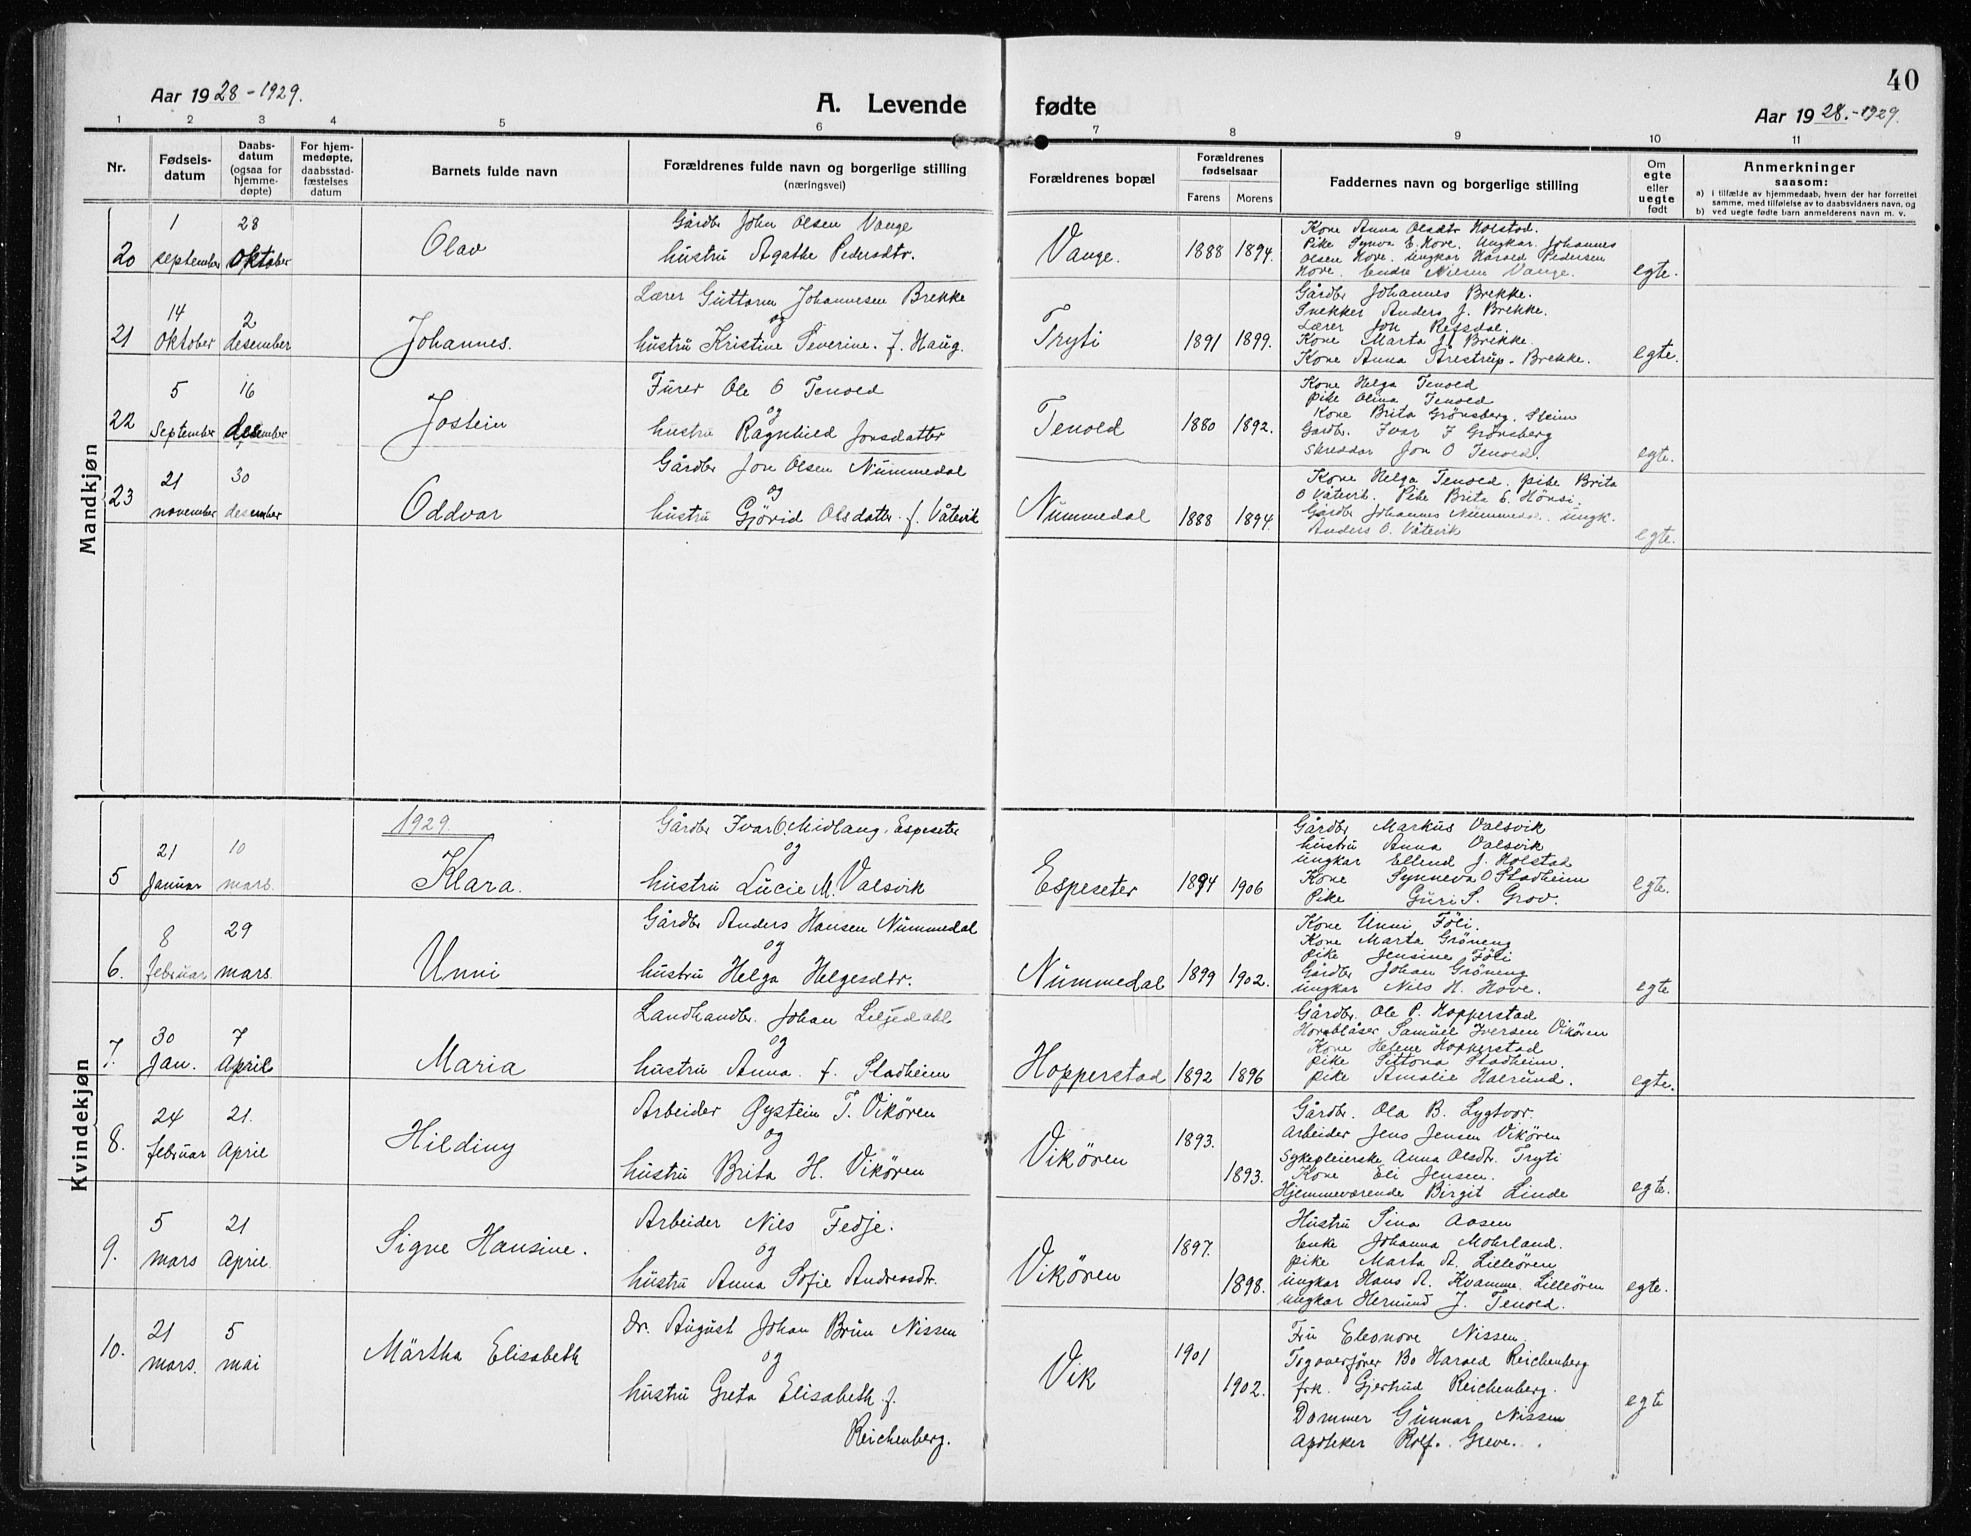 40
Aar 1928-1929.
A. Levende fødte
Aar 1928.-1929.
1 2 3 4 5 6 7 8 9 10 11
Nr.
Fødsels-
datum
Daabs-
datum
(ogsaa for
hjemme-
døpte)
For hjem-
medøpte,
daabsstad-
fæstelses
datum
Barnets fulde navn
Forældrenes fulde navn og borgerlige stilling
(næringsvei)
Forældrenes bopæl
Forældrenes
fødselsaar
Farens Morens
Faddernes navn og borgerlige stilling
Om
egte
eller
uegte
født
Anmerkninger
saasom:
a) i tilfælde av hjemmedaab, hvem der har forrettet
samme, med tilføielse av to daabsvidners navn, og
b) ved uegte fødte barn anmelderens navn m. v.
Mandkjøn
20
1
september
28
oktober
Olav
Gårdbr John Olsen Vange
hustru Agathe Pedersdtr.
Vange.
1888 1894.
Kone Anna Olsdtr Holstad.
Pike Synva E. Hove. Ungkar Johannes
Olsen Hove. ungkar Harald Pedersen
Hove. Endre Nilsen Vange.
egte.
21
14
oktober
2
desember
Johannes.
Lærer Guttorm Johannesen Brekke
og
hustru Kristine Severine. f. Haug.
Tryti
1891 1899.
Gårdbr Johannes Brekke.
Snekker Anders J. Brekke.
Lærer Jon Refsdal.
Kone Marta J. Brekke.
Kone Anna Årestrup-Brekke.
egte.
22
5
September
16
desember
Jostein
Furer Ole O Tenold
og
hustru Ragnhild Jonsdatter
Tenold
1880 1892.
Kone Helga Tenold
pike Olina Tenold
Kone Brita Grønsberg. Steim
Gardbr. Ivar I Grønsberg
Skreddar Jon O Tenold.
egte.
23
21
november
30
desember
Oddvar
Gårdbr Jon Olsen Nummedal
og
hustru Gjørid Olsdatter f. Våtevik
Nummedal
1888 1894.
Kone Helga Tenold. pike Brita
O Våtevik. Pike Brita E. Hönsi.
Gårdbr Johannes Nummedal. ungk.
Anders O. Våtevik
egte.
Kvindekjøn
1929.
5
21
Januar
10
mars.
Klara.
Gårdbr Ivar O. Midlang. Espeseter
og
hustru Lucie M. Valsvik
Espeseter
1894 1906
Gårdbr Markus Valsvik
hustru Anna Valsvik
ungkar Ellend J. Holstad
Kone Synneva O Stadheim
Pike Guri S. Grov.
egte.
6.
8
februar
29
mars.
Unni
Gårdbr Anders Hansen Nummedal
og
hustru Helga Helgesdtr.
Nummedal
1899 1902.
Kone Unni Föli.
Kone Marta Gröneng
pike Jensine Föli
Gårdbr Johan Gröneng
ungkar Nils H. Hove.
egte
7.
30
Jan.
7
april
Maria
Landhandbr. Johan Liljedahl
og
hustru Anna. f. Stadheim
Hopperstad
1892 1896
Gårdbr. Ole P. Hopperstad
Hornblåser Samuel Iversen Vikören
Kone Helene Hopperstad
pike Sittona Stadheim.
pike Amalie Halsund.
egte.
8.
24
februar
21.
april
Hilding
Arbeider Øystein T. Vikören
og
hustru Brita H. Vikören
Vikören
1893.
1893.
Gårdbr. Ola B. Lygtvor.
Arbeider Jens Jensen Vikören
Sykepleierske Anna Olsdtr. Tryti
Kone Eli Jensen.
Hjemmeværende Birgit Linde
egte.
9.
5
mars
21
april
Signe Hansine.
Arbeider Nils Fedje.
og
hustru Anna Sofie Andreasdtr.
Vikören
1897.
1898.
Hustru Sina Aasen
Enke Johanna Mohrland.
pike Marta A. Lilleören
ungkar Hans A. Kvamme. Lilleören
ungkar Hermund J. Tenold.
egte.
10.
21
mars.
5
mai
Märtha Elisabeth
Dr. August Johan Brun Nissen
og
hustru Greta Elisabeth f.
Reichenberg.
Vik
1901
1902.
Fru Eleonore Nissen.
Togoverfører Bo Harald Reichenberg
frk. Gjertrud Reichenberg.
Dommer Gunnar Nissen
Apoteker Rolf. Greve.
egte